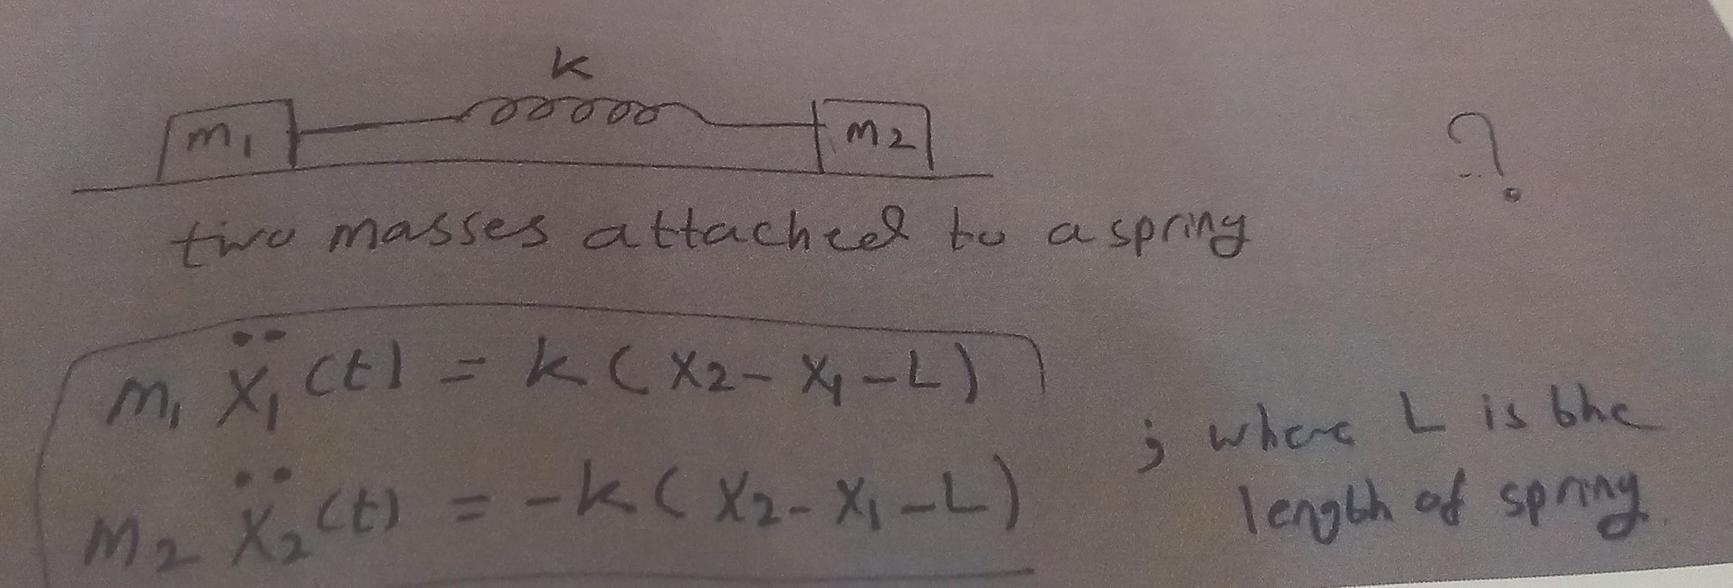 k
m₁ m₂
?
two masses attached to a spring
m₁ ẍ₁(t) = k(x₂ - x₁ - L)
m₂ ẍ₂(t) = -k(x₂ - x₁ - L)
; where L is the
length of spring.